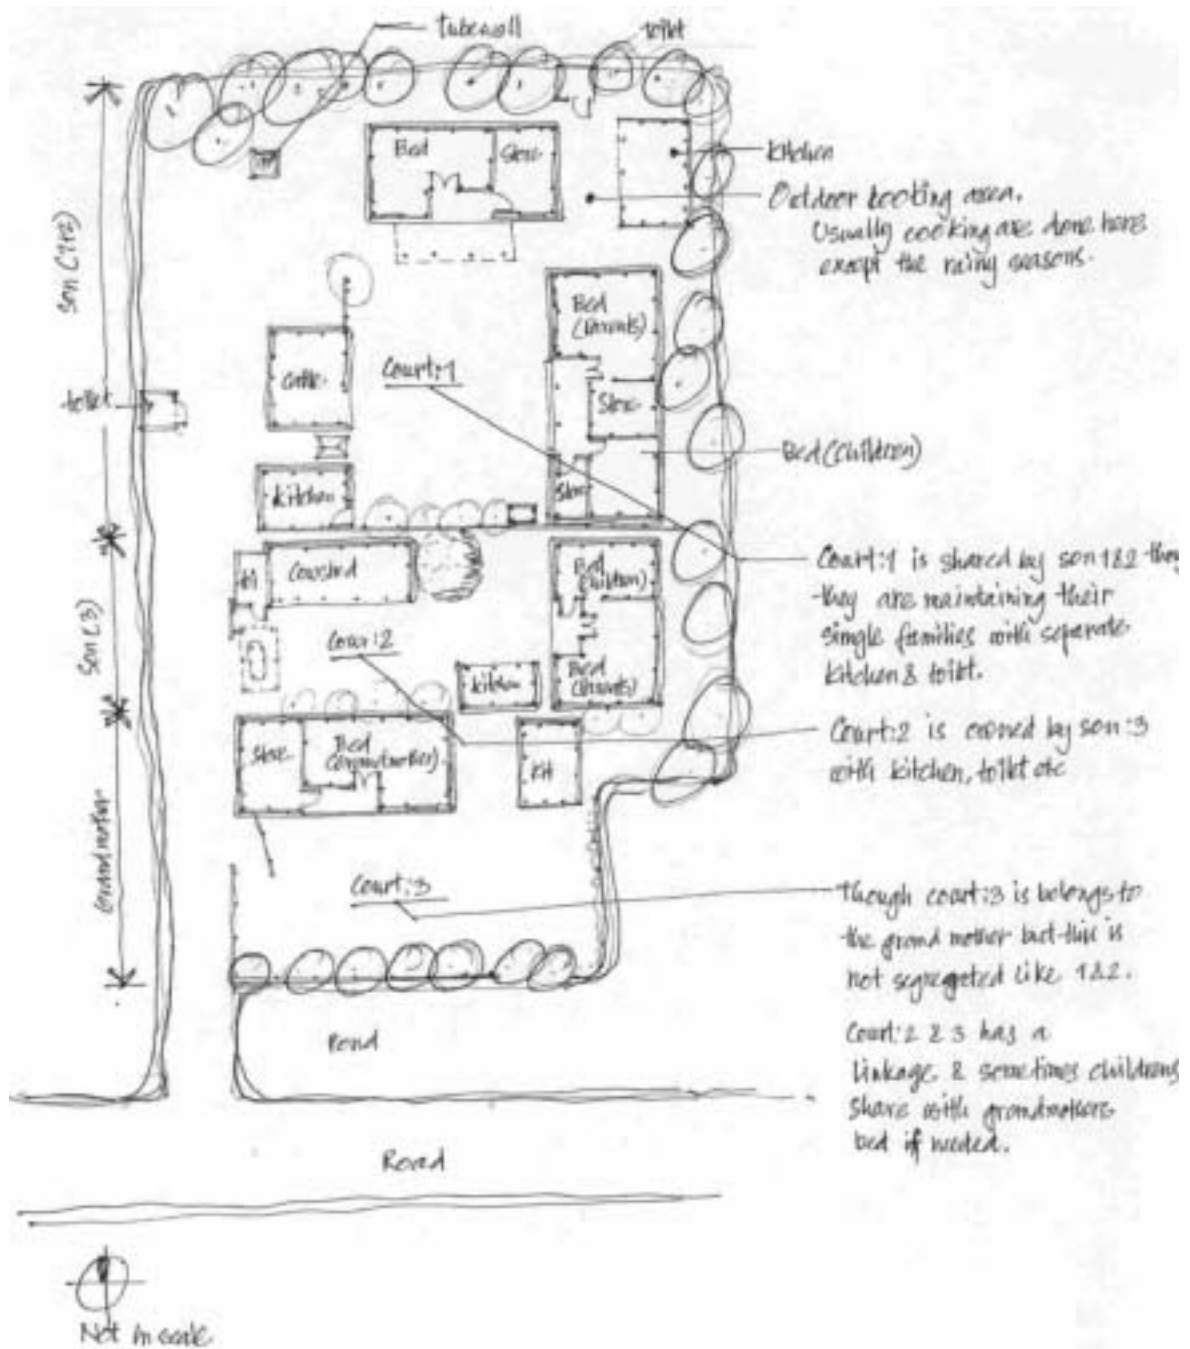 tubewell
toilet
Bed
Store
Kitchen
Outdoor cooking area.
Usually cooking are done here
except the rainy seasons.
son (1&2)
Bed
(Parents)
Cattle
Court:1
Store
toilet
Bed (Children)
Kitchen
Store
Cowshed
Bed
(Children)
Court:1 is shared by son 1&2 they
they are maintaining their
single families with separate
kitchen & toilet.
Son (3)
Cour:2
Kitchen
Bed
(Parents)
Court:2 is owned by son:3
with kitchen, toilet etc
Store
Bed
(Grandmother)
Kit
Grandmother
Court:3
Though court:3 is belongs to
the grand mother but this is
not segregated like 1&2.
Court:2 & 3 has a
linkage & sometimes childrens
share with grandmothers
bed if needed.
Pond
Road
Not in scale